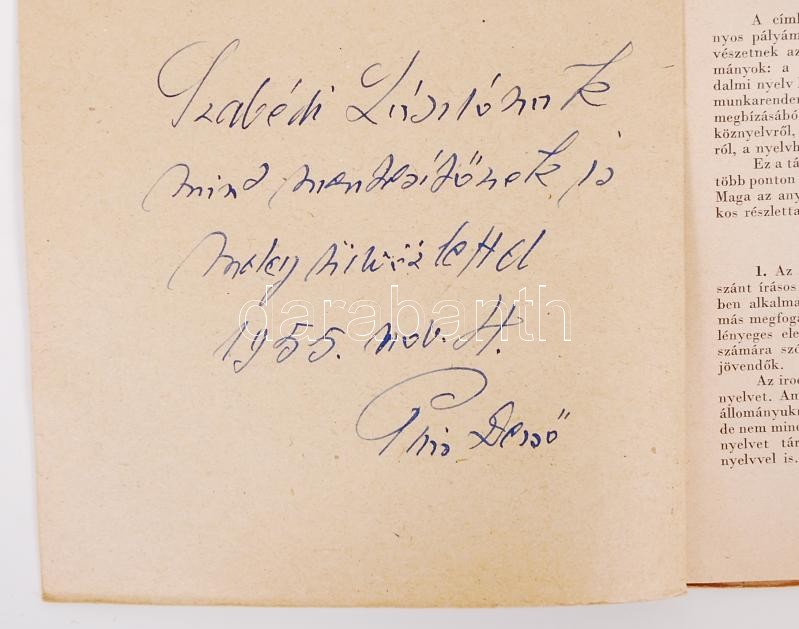 Szabédi Lászlónak
mind mentesítőnek is
meleg üdvözlettel
1955. nov. 4.
Pais Dezső
darabanth
A címb
nyos pályám
vészetnek az
mányok: a
dalmi nyelv
munkarenden
megbízásából
köznyelvről,
ról, a nyelvh
Ez a tá
több ponton
Maga az any
kos részletta
1. Az
szánt írásos
ben alkalma
más megfoga
lényeges ele
számára szó
jövendők.
Az irod
nyelvet. Am
állományukn
de nem mind
nyelvet tár
nyelvvel is.